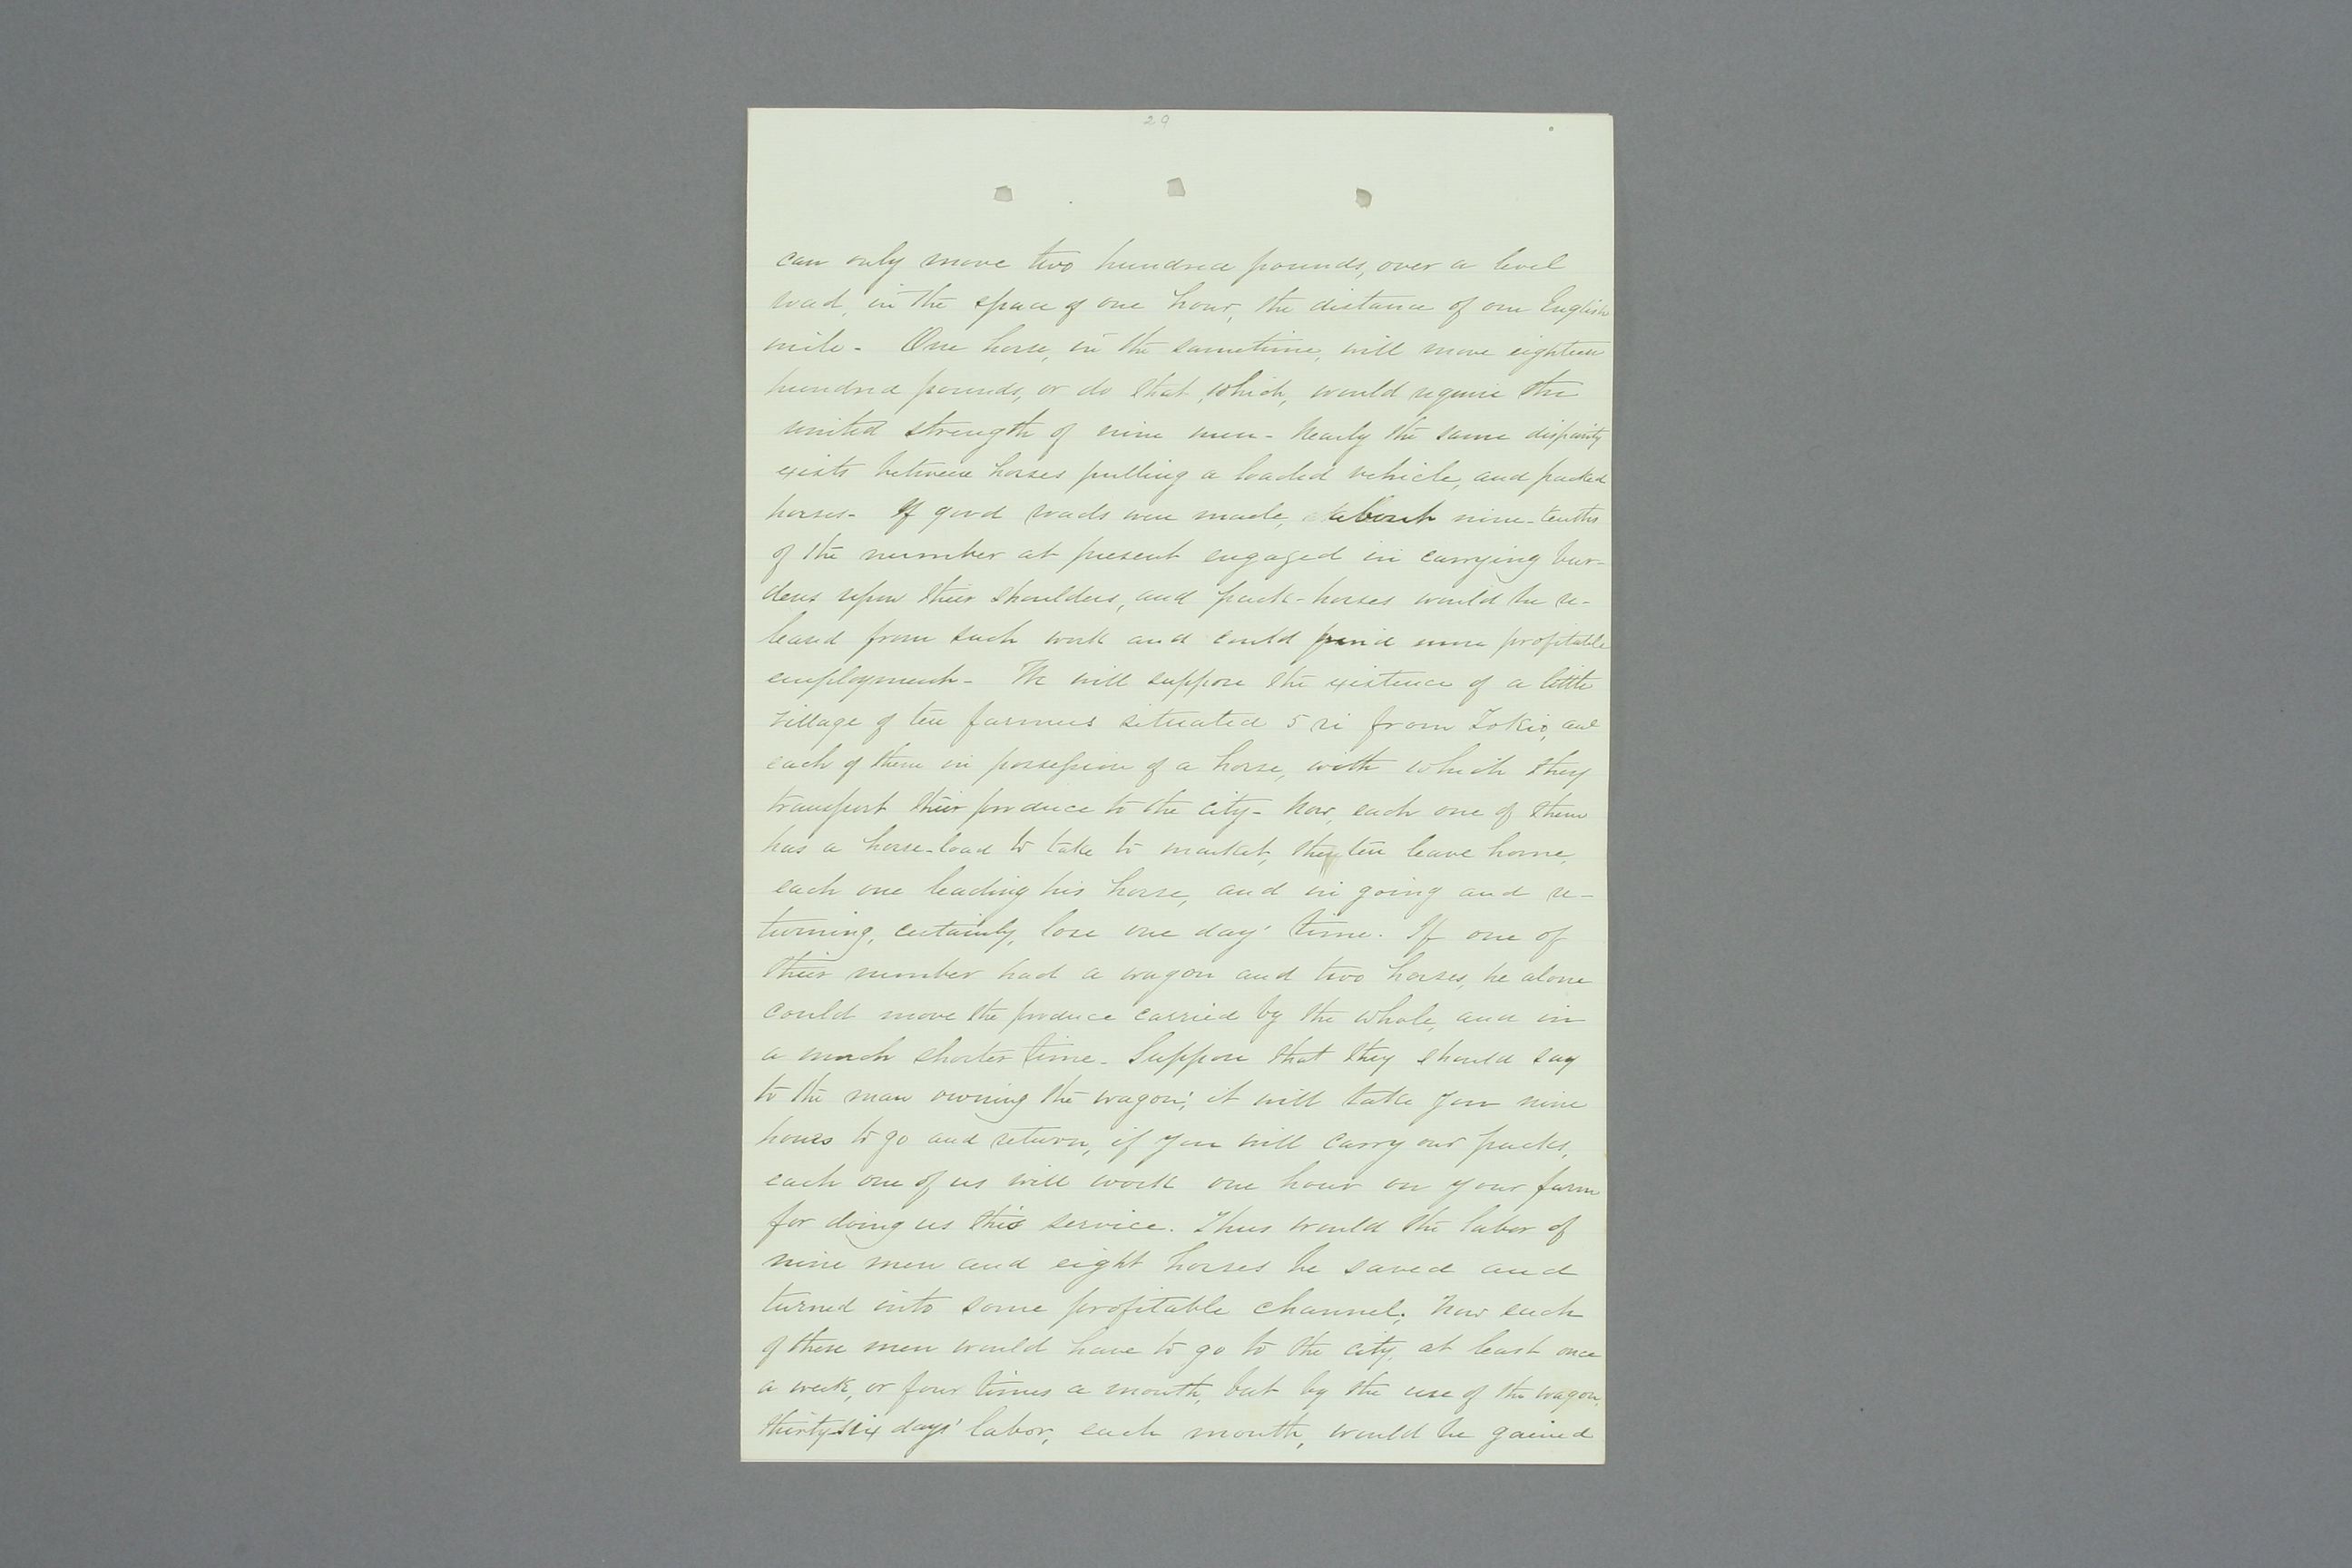 29
can only move two hundred pounds, over a level
road, in the space of one hour, the distance of one English
mile - One horse, in the sametime, will move eighteen
hundred pounds, or do that, which, would require the
united strength of nine men - Nearly the same disparity
exists between horses pulling a loaded vehicle, and packed
horses - If good roads were made, about nine-tenths
of the number at present engaged in carrying bur-
dens upon their shoulders, and pack-horses would be re-
leased from such work and could find more profitable
employment - We will suppose the existence of a little
village of ten farmers situated 5 ri from Tokio, and
each of them in possession of a horse, with which they
transport their produce to the city - Now, each one of them
has a horse-load to take to market, the ten leave home,
each one leading his horse, and in going and re-
turning, certainly, lose one day' time. If one of
their number had a wagon and two horses, he alone
could move the produce carried by the whole, and in
a much shorter time - Suppose that they should say
to the man owning the wagon; it will take you nine
hours to go and return, if you will carry our packs,
each one of us will work one hour on your farm
for doing us this service. Thus would the labor of
nine men and eight horses be saved and
turned into some profitable channel. Now each
of these men would have to go to the city, at least once
a week, or four times a month, but by the use of the wagon,
thirty-six days' labor, each month, would be gained